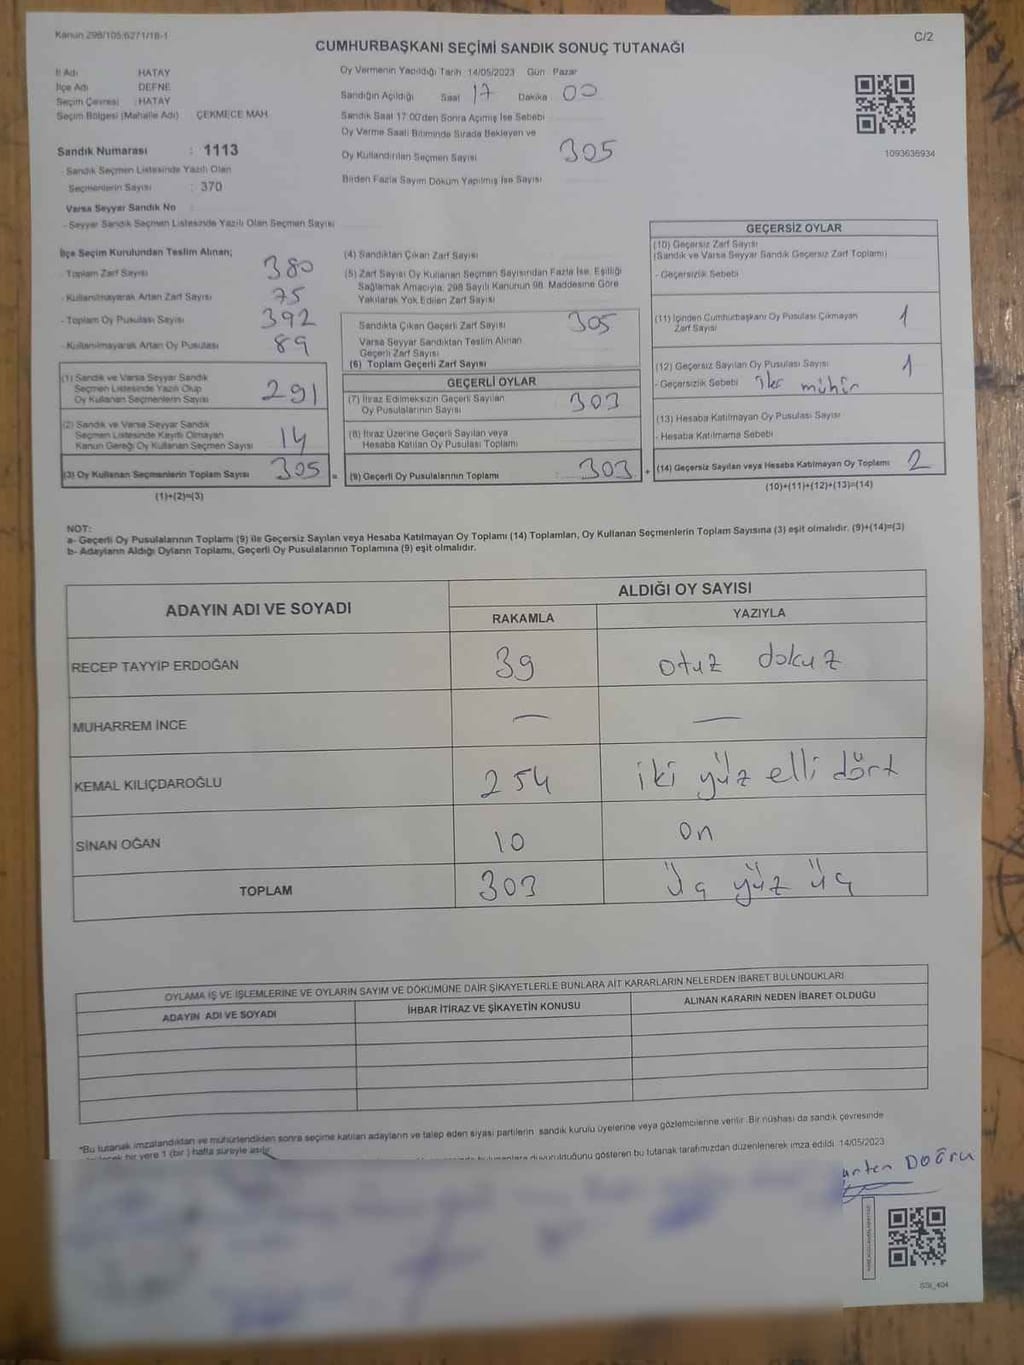 Kanun 298/105;6271/18-1
C/2
CUMHURBAŞKANI SEÇİMİ SANDIK SONUÇ TUTANAĞI
İl Adı HATAY
İlçe Adı DEFNE
Seçim Çevresi : HATAY
Seçim Bölgesi (Mahalle Adı) ÇEKMECE MAH.
Sandık Numarası : 1113
- Sandık Seçmen Listesinde Yazılı Olan
Seçmenlerin Sayısı : 370
Varsa Seyyar Sandık No
- Seyyar Sandık Seçmen Listesinde Yazılı Olan Seçmen Sayısı
Oy Vermenin Yapıldığı Tarih : 14/05/2023 Gün : Pazar
Sandığın Açıldığı Saat 17 Dakika 00
Sandık Saat 17:00'den Sonra Açımış İse Sebebi
Oy Verme Saati Bitiminde Sırada Bekleyen ve
Oy Kullandırılan Seçmen Sayısı 305
Birden Fazla Sayım Döküm Yapılmış İse Sayısı
1093636934
İlçe Seçim Kurulundan Teslim Alınan;
- Toplam Zarf Sayısı 380
- Kullanılmayarak Artan Zarf Sayısı 75
- Toplam Oy Pusulası Sayısı 392
- Kullanılmayarak Artan Oy Pusulası 89
(1) Sandık ve Varsa Seyyar Sandık
Seçmen Listesinde Yazılı Olup
Oy Kullanan Seçmenlerin Sayısı 291
(2) Sandık ve Varsa Seyyar Sandık
Seçmen Listesinde Kayıtlı Olmayan
Kanun Gereği Oy Kullanan Seçmen Sayısı 14
(3) Oy Kullanan Seçmenlerin Toplam Sayısı 305 =
(1)+(2)=(3)
(4) Sandıktan Çıkan Zarf Sayısı
(5) Zarf Sayısı Oy Kullanan Seçmen Sayısından Fazla İse, Eşitliği
Sağlamak Amacıyla, 298 Sayılı Kanunun 98. Maddesine Göre
Yakılarak Yok Edilen Zarf Sayısı
Sandıkta Çıkan Geçerli Zarf Sayısı 305
Varsa Seyyar Sandıktan Teslim Alınan
Geçerli Zarf Sayısı
(6) Toplam Geçerli Zarf Sayısı
GEÇERLİ OYLAR
(7) İtiraz Edilmeksizin Geçerli Sayılan
Oy Pusulalarının Sayısı 303
(8) İtiraz Üzerine Geçerli Sayılan veya
Hesaba Katılan Oy Pusulası Toplamı
(9) Geçerli Oy Pusulalarının Toplamı : 303 +
GEÇERSİZ OYLAR
(10) Geçersiz Zarf Sayısı
(Sandık ve Varsa Seyyar Sandık Geçersiz Zarf Toplamı)
- Geçersizlik Sebebi
(11) İçinden Cumhurbaşkanı Oy Pusulası Çıkmayan
Zarf Sayısı 1
(12) Geçersiz Sayılan Oy Pusulası Sayısı 1
- Geçersizlik Sebebi iki mühür
(13) Hesaba Katılmayan Oy Pusulası Sayısı
- Hesaba Katılmama Sebebi
(14) Geçersiz Sayılan veya Hesaba Katılmayan Oy Toplamı 2
(10)+(11)+(12)+(13)=(14)
NOT:
a- Geçerli Oy Pusulalarının Toplamı (9) ile Geçersiz Sayılan veya Hesaba Katılmayan Oy Toplamı (14) Toplamları, Oy Kullanan Seçmenlerin Toplam Sayısına (3) eşit olmalıdır. (9)+(14)=(3)
b- Adayların Aldığı Oyların Toplamı, Geçerli Oy Pusulalarının Toplamına (9) eşit olmalıdır.
ADAYIN ADI VE SOYADI ALDIĞI OY SAYISI
RAKAMLA YAZIYLA
RECEP TAYYİP ERDOĞAN 39 otuz dokuz
MUHARREM İNCE — —
KEMAL KILIÇDAROĞLU 254 iki yüz elli dört
SİNAN OĞAN 10 on
TOPLAM 303 üç yüz üç
OYLAMA İŞ VE İŞLEMLERİNE VE OYLARIN SAYIM VE DÖKÜMÜNE DAİR ŞİKAYETLERLE BUNLARA AİT KARARLARIN NELERDEN İBARET BULUNDUKLARI
ADAYIN ADI VE SOYADI İHBAR İTİRAZ VE ŞİKAYETİN KONUSU ALINAN KARARIN NEDEN İBARET OLDUĞU
*Bu tutanak imzalandıktan ve mühürlendikten sonra seçime katılan adayların ve talep eden siyasi partilerin sandık kurulu üyelerine veya gözlemcilerine verilir. Bir nüshası da sandık çevresinde
bir yere 1 (bir) hafta süreyle asılır.
duyurulduğunu gösteren bu tutanak tarafımızdan düzenlenerek imza edildi. 14/05/2023
DOĞRU